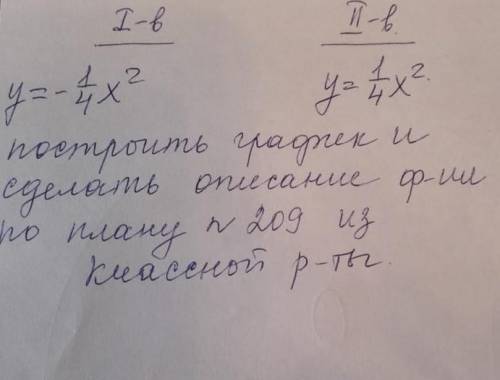 I-в II-в.
y = -1/4 x² y = 1/4 x².
построить график и
сделать описание ф-ии
по плану n 209 из
классной р-ты.